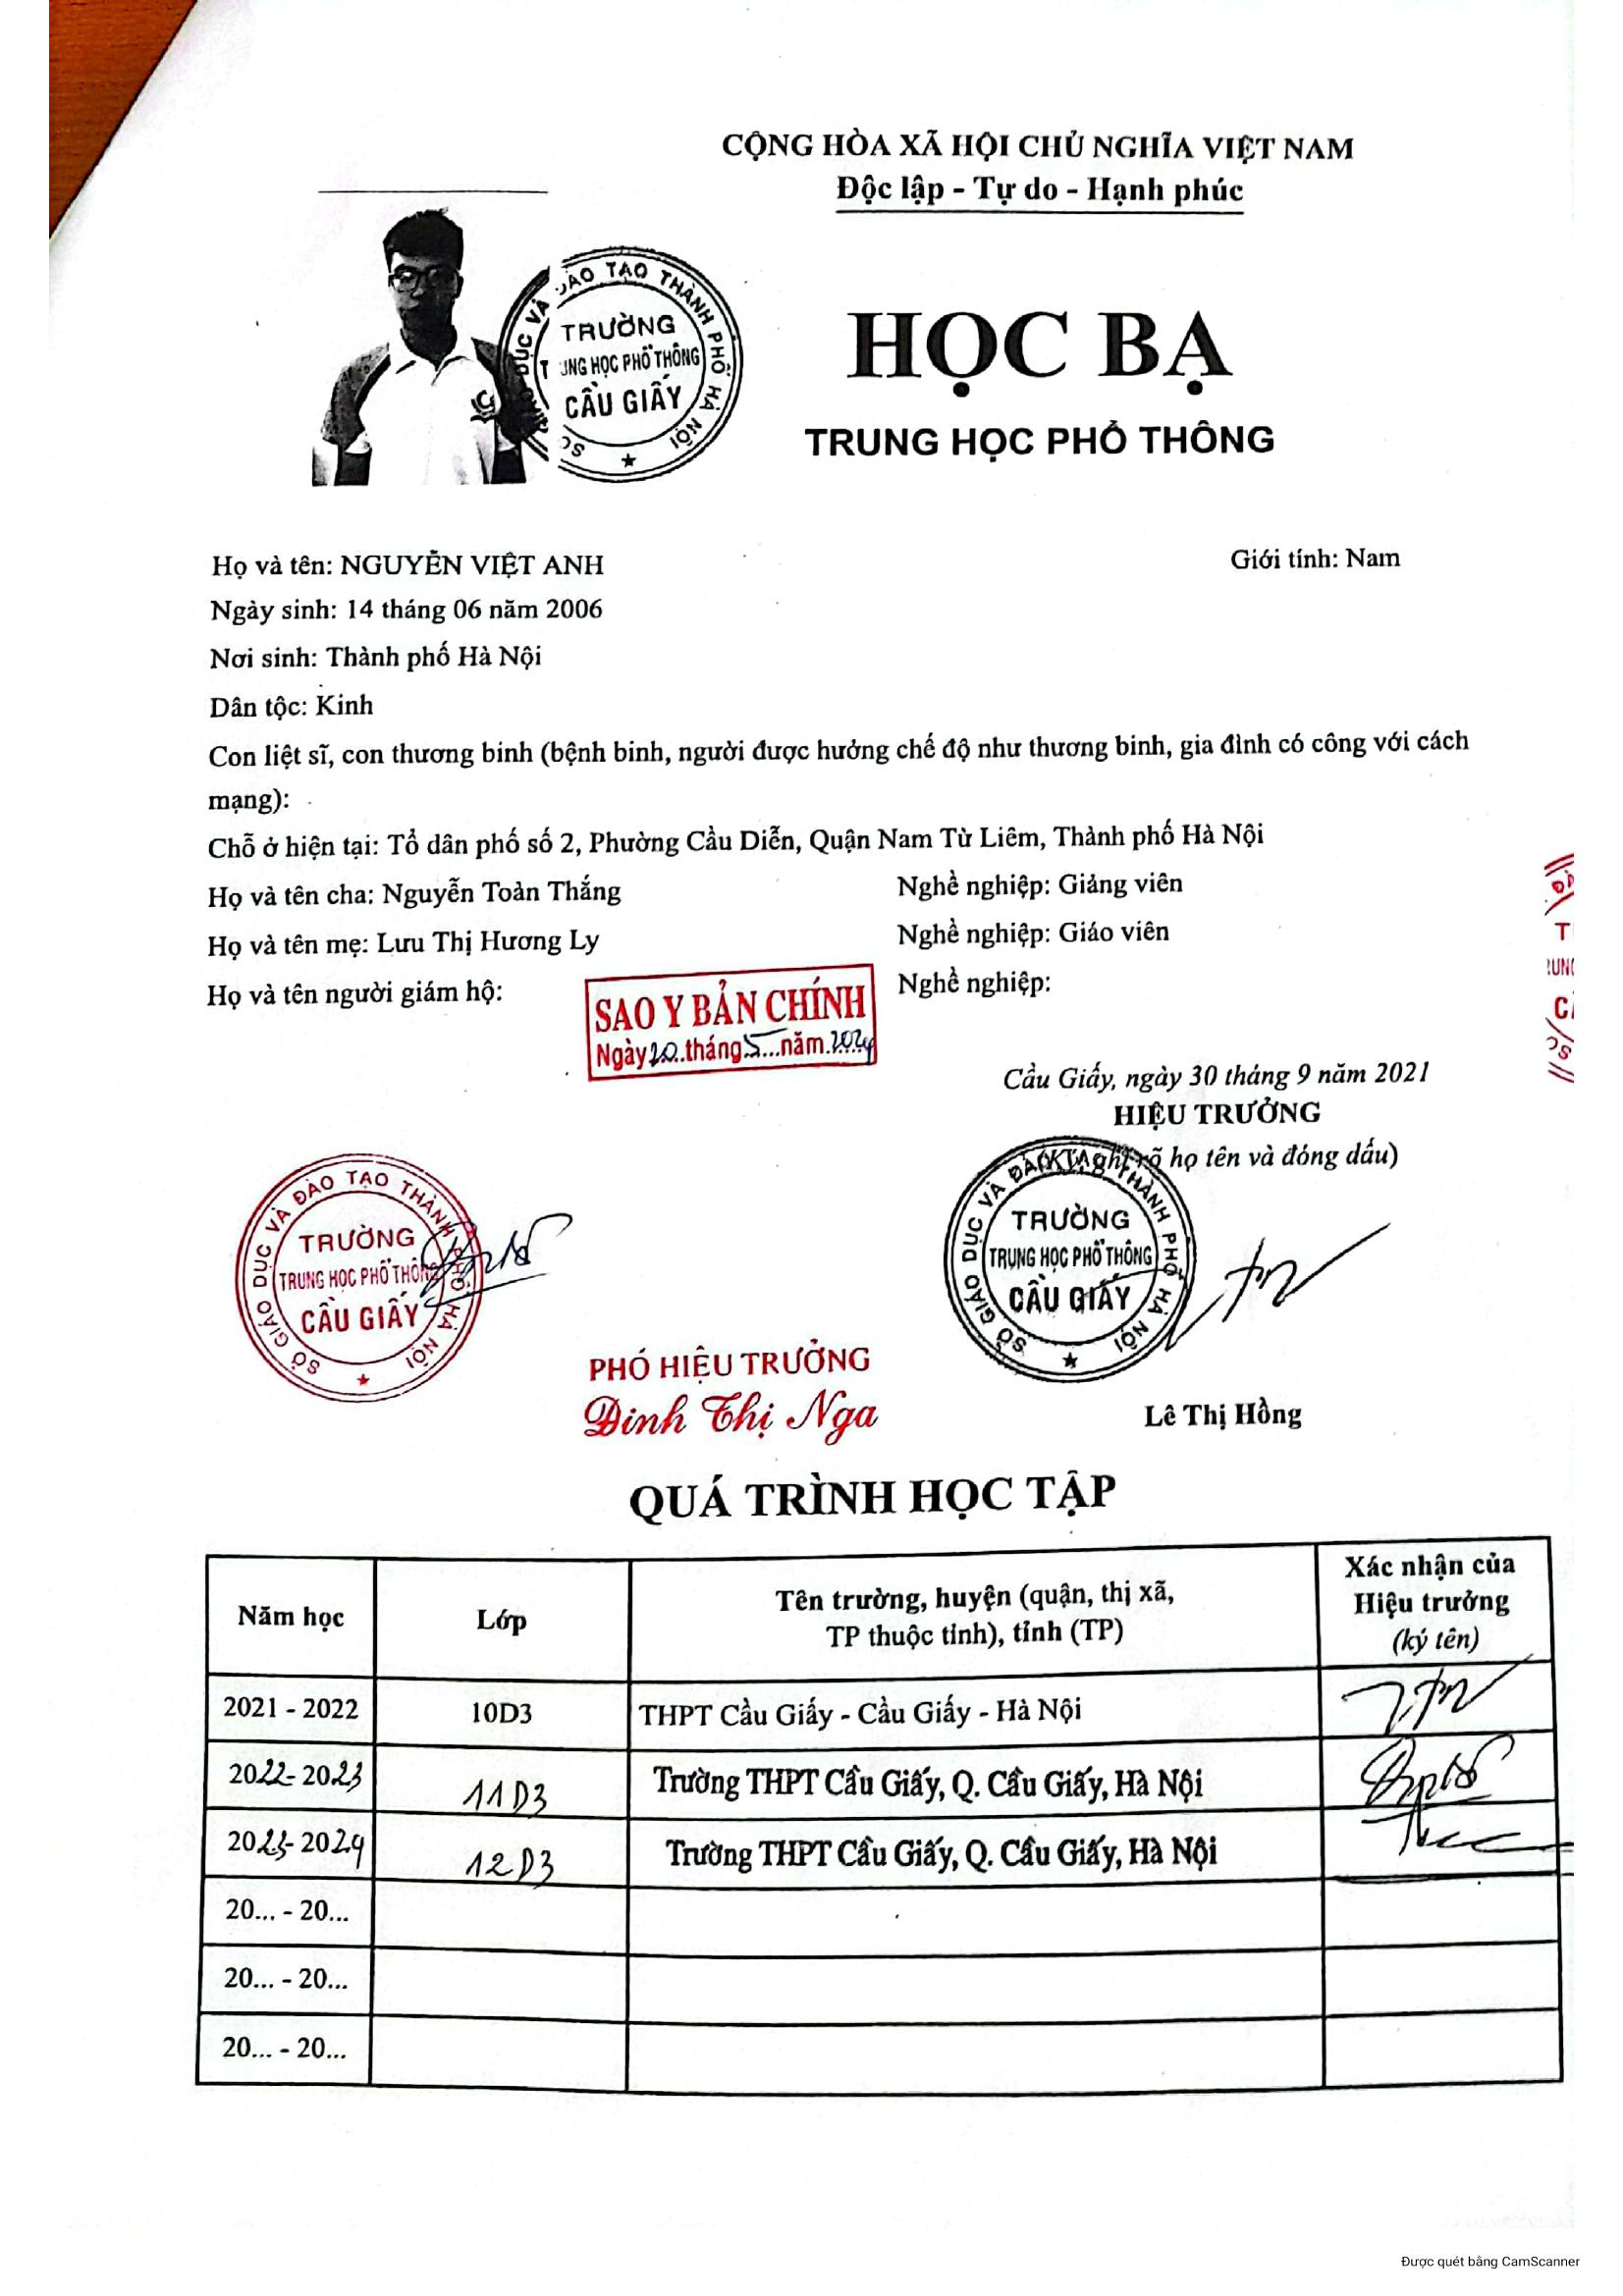 CỘNG HÒA XÃ HỘI CHỦ NGHĨA VIỆT NAM
Độc lập - Tự do - Hạnh phúc
SỞ GIÁO DỤC VÀ ĐÀO TẠO THÀNH PHỐ HÀ NỘI
TRƯỜNG
TRUNG HỌC PHỔ THÔNG
CẦU GIẤY
HỌC BẠ
TRUNG HỌC PHỔ THÔNG
Họ và tên: NGUYỄN VIỆT ANH
Giới tính: Nam
Ngày sinh: 14 tháng 06 năm 2006
Nơi sinh: Thành phố Hà Nội
Dân tộc: Kinh
Con liệt sĩ, con thương binh (bệnh binh, người được hưởng chế độ như thương binh, gia đình có công với cách
mạng):
Chỗ ở hiện tại: Tổ dân phố số 2, Phường Cầu Diễn, Quận Nam Từ Liêm, Thành phố Hà Nội
Họ và tên cha: Nguyễn Toàn Thắng
Nghề nghiệp: Giảng viên
Họ và tên mẹ: Lưu Thị Hương Ly
Nghề nghiệp: Giáo viên
Họ và tên người giám hộ:
Nghề nghiệp:
SAO Y BẢN CHÍNH
Ngày 20 tháng 5 năm 2024
Cầu Giấy, ngày 30 tháng 9 năm 2021
HIỆU TRƯỞNG
họ tên và đóng dấu)
SỞ GIÁO DỤC VÀ ĐÀO TẠO THÀNH PHỐ HÀ NỘI
TRƯỜNG
TRUNG HỌC PHỔ THÔNG
CẦU GIẤY
SỞ GIÁO DỤC VÀ ĐÀO TẠO THÀNH PHỐ HÀ NỘI
TRƯỜNG
TRUNG HỌC PHỔ THÔNG
CẦU GIẤY
PHÓ HIỆU TRƯỞNG
Đinh Thị Nga
Lê Thị Hồng
QUÁ TRÌNH HỌC TẬP
Năm học
Lớp
Tên trường, huyện (quận, thị xã,
TP thuộc tỉnh), tỉnh (TP)
Xác nhận của
Hiệu trưởng
(ký tên)
2021 - 2022
10D3
THPT Cầu Giấy - Cầu Giấy - Hà Nội
2022 - 2023
11D3
Trường THPT Cầu Giấy, Q. Cầu Giấy, Hà Nội
2023 - 2024
12D3
Trường THPT Cầu Giấy, Q. Cầu Giấy, Hà Nội
20... - 20...
20... - 20...
20... - 20...
Được quét bằng CamScanner